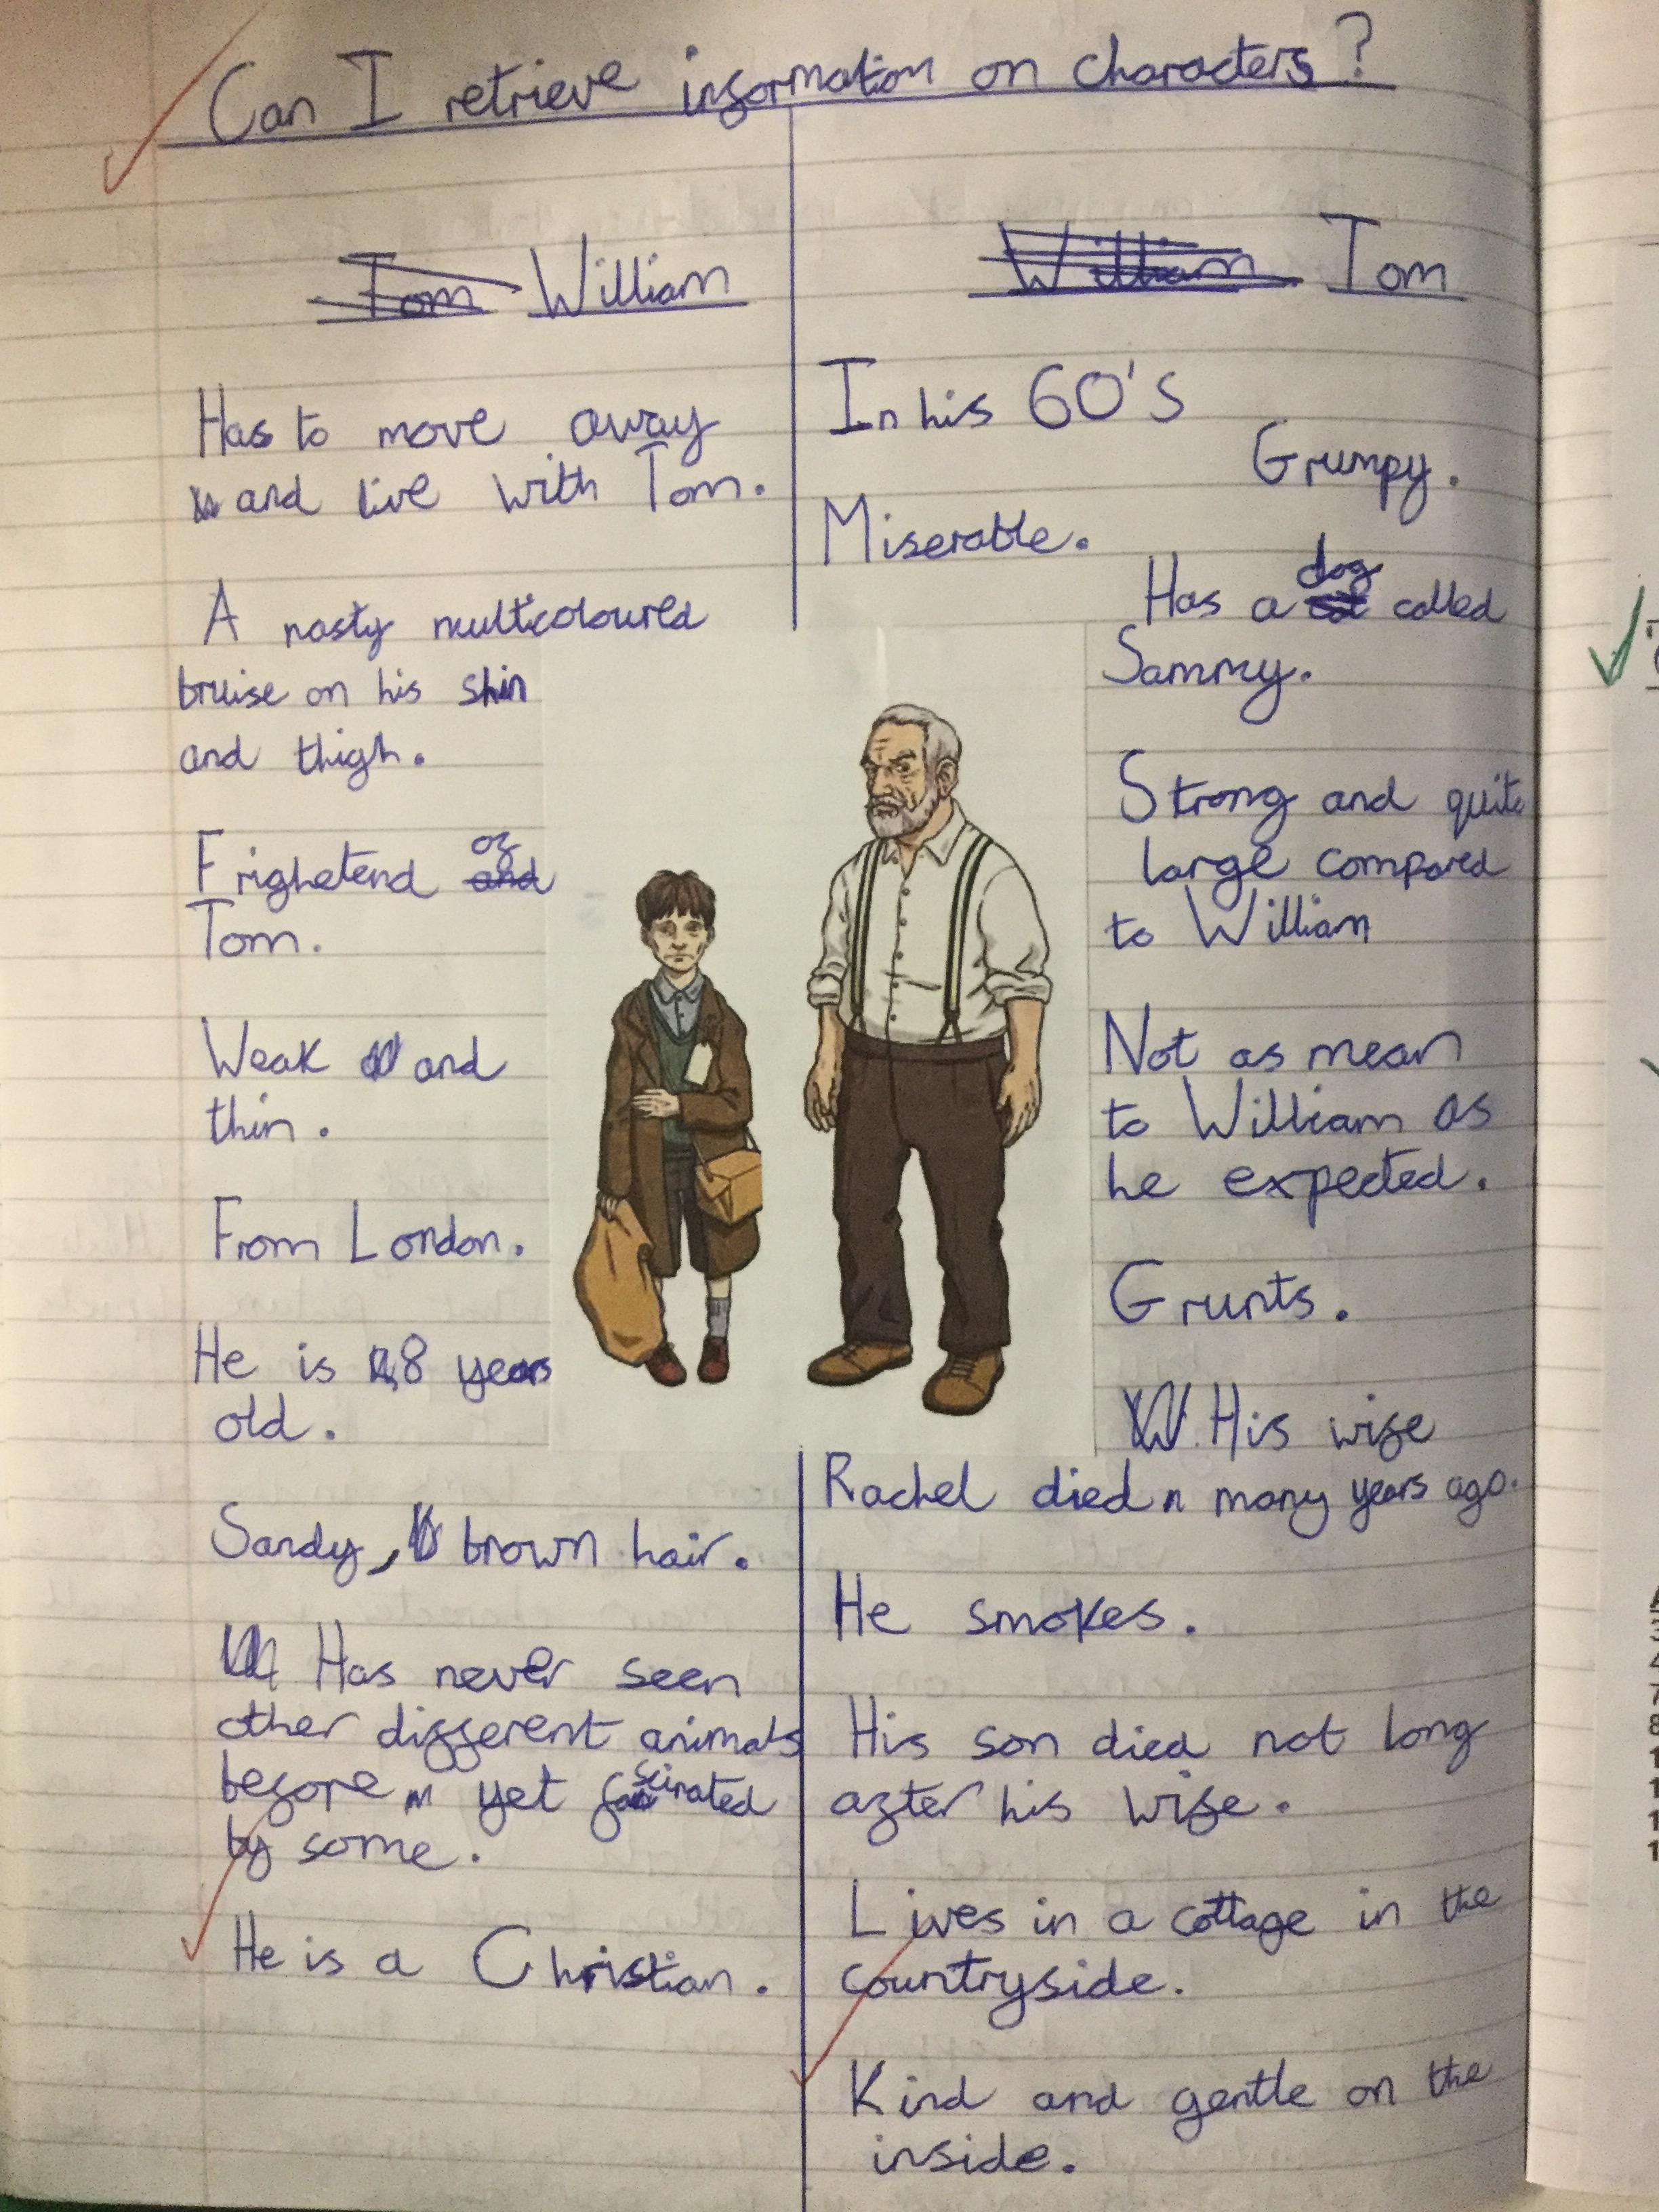 Can I retrieve information on characters?
Tom William
Has to move away
and live with Tom.
A nasty multicoloured
bruise on his shin
and thigh.
Frighetend and of
Tom.
Weak and
thin.
From London.
He is 8 years
old.
Sandy, brown hair.
Has never seen
other different animals
before yet fascinated
by some.
He is a Christian.
William Tom
In his 60's
Grumpy.
Miserable.
Has a dog called
Sammy.
Strong and quite
large compared
to William
Not as mean
to William as
he expected.
Grunts.
His wife
Rachel died many years ago.
He smokes.
His son died not long
after his wife.
Lives in a cottage in the
countryside.
Kind and gentle on the
inside.